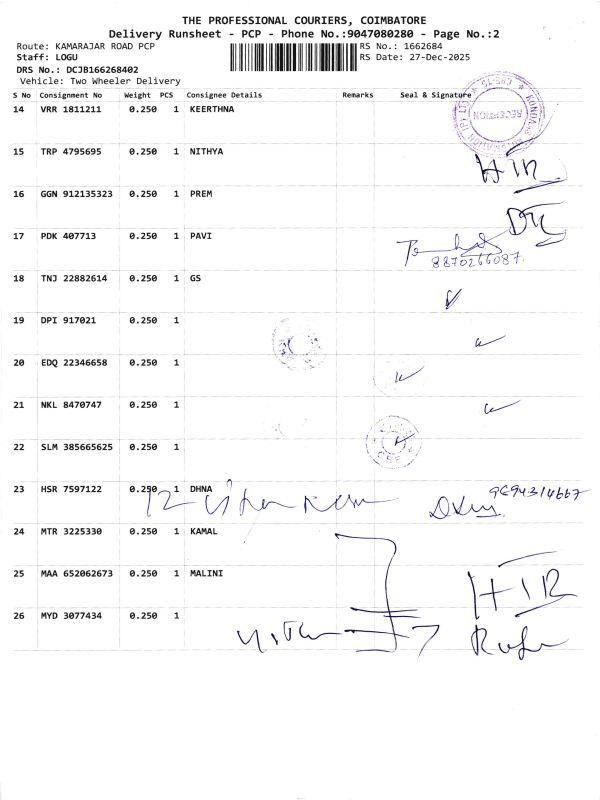 THE PROFESSIONAL COURIERS, COIMBATORE
Delivery Runsheet - PCP - Phone No.:9047080280 - Page No.:2
Route: KAMARAJAR ROAD PCP
RS No.: 1662684
Staff: LOGU
RS Date: 27-Dec-2025
DRS No.: DCJB166268402
Vehicle: Two Wheeler Delivery
S No Consignment No Weight PCS Consignee Details Remarks Seal & Signature
14 VRR 1811211 0.250 1 KEERTHNA
RECEPTION
15 TRP 4795695 0.250 1 NITHYA
16 GGN 912135323 0.250 1 PREM
17 PDK 407713 0.250 1 PAVI
8870266087.
18 TNJ 22882614 0.250 1 GS
19 DPI 917021 0.250 1
20 EDQ 22346658 0.250 1
21 NKL 8470747 0.250 1
22 SLM 385665625 0.250 1
23 HSR 7597122 0.250 1 DHNA
9894314667
24 MTR 3225330 0.250 1 KAMAL
25 MAA 652062673 0.250 1 MALINI
26 MYD 3077434 0.250 1